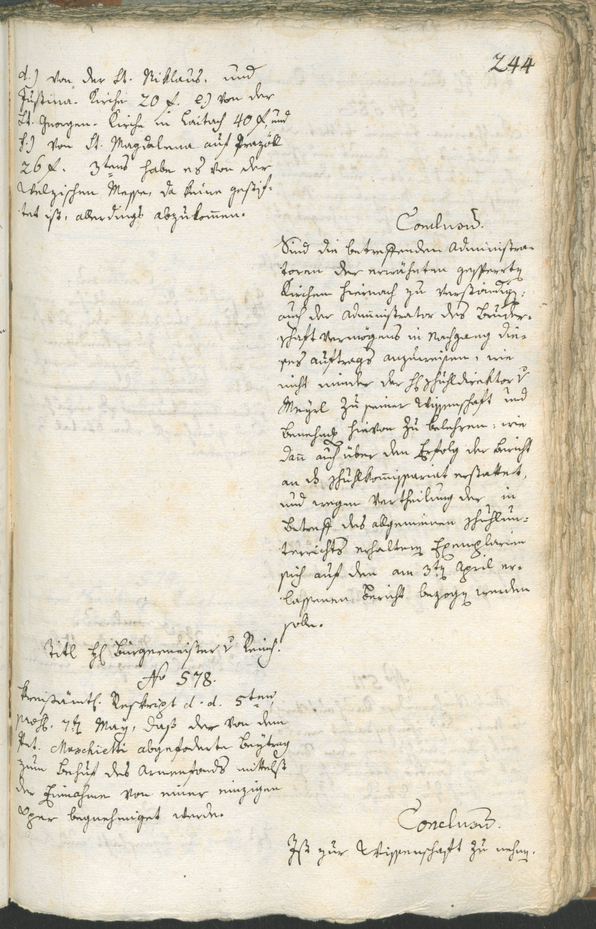 244
d.) von der St. Niklaus, und
Justina Kirche 20 f. e.) von der
St. Georgen Kirche in Laitach 40 f, und
f.) von St. Magdalena auf Prazöll
26 f. 3tens habe es von der
Welzischen Messe, da keine gestif-
tet ist, allerdings abzukommen.
Conclusum.
Sind die betreffenden Administra-
toren der erwähnten gesperrten
Kirchen hienach zu verständigen,
auch der Administrator des Bruder-
schaft Vermögens in Nachgang die-
ses Auftrags anzuweisen, wie
nicht minder der H. Schuldirektor v
zu seiner Wissenschaft und
Benehmen hievon zu belehren, wie
dann auch über den Erfolg der Bericht
an das Schulkommissariat erstattet,
und wegen Vertheilung der in
Betreff des allgemeinen Schulun-
terrichts erhaltenen Exemplarien
sich auf den am 3ten April er-
lassenen Bericht bezogen werden
solle.
Titl H. Bürgermeister v Reich.
No 578.
Kreisämtl. Reskript d. d. 5ten,
7ten May, daß der von dem
Marchietti abgeforderte Beytrag
zum Behuf des Armenfonds mittelst
der Einnahme von einer einzigen
Oper begnehmiget werde.
Conclusum.
Ist zur Wissenschaft zu nehmen.